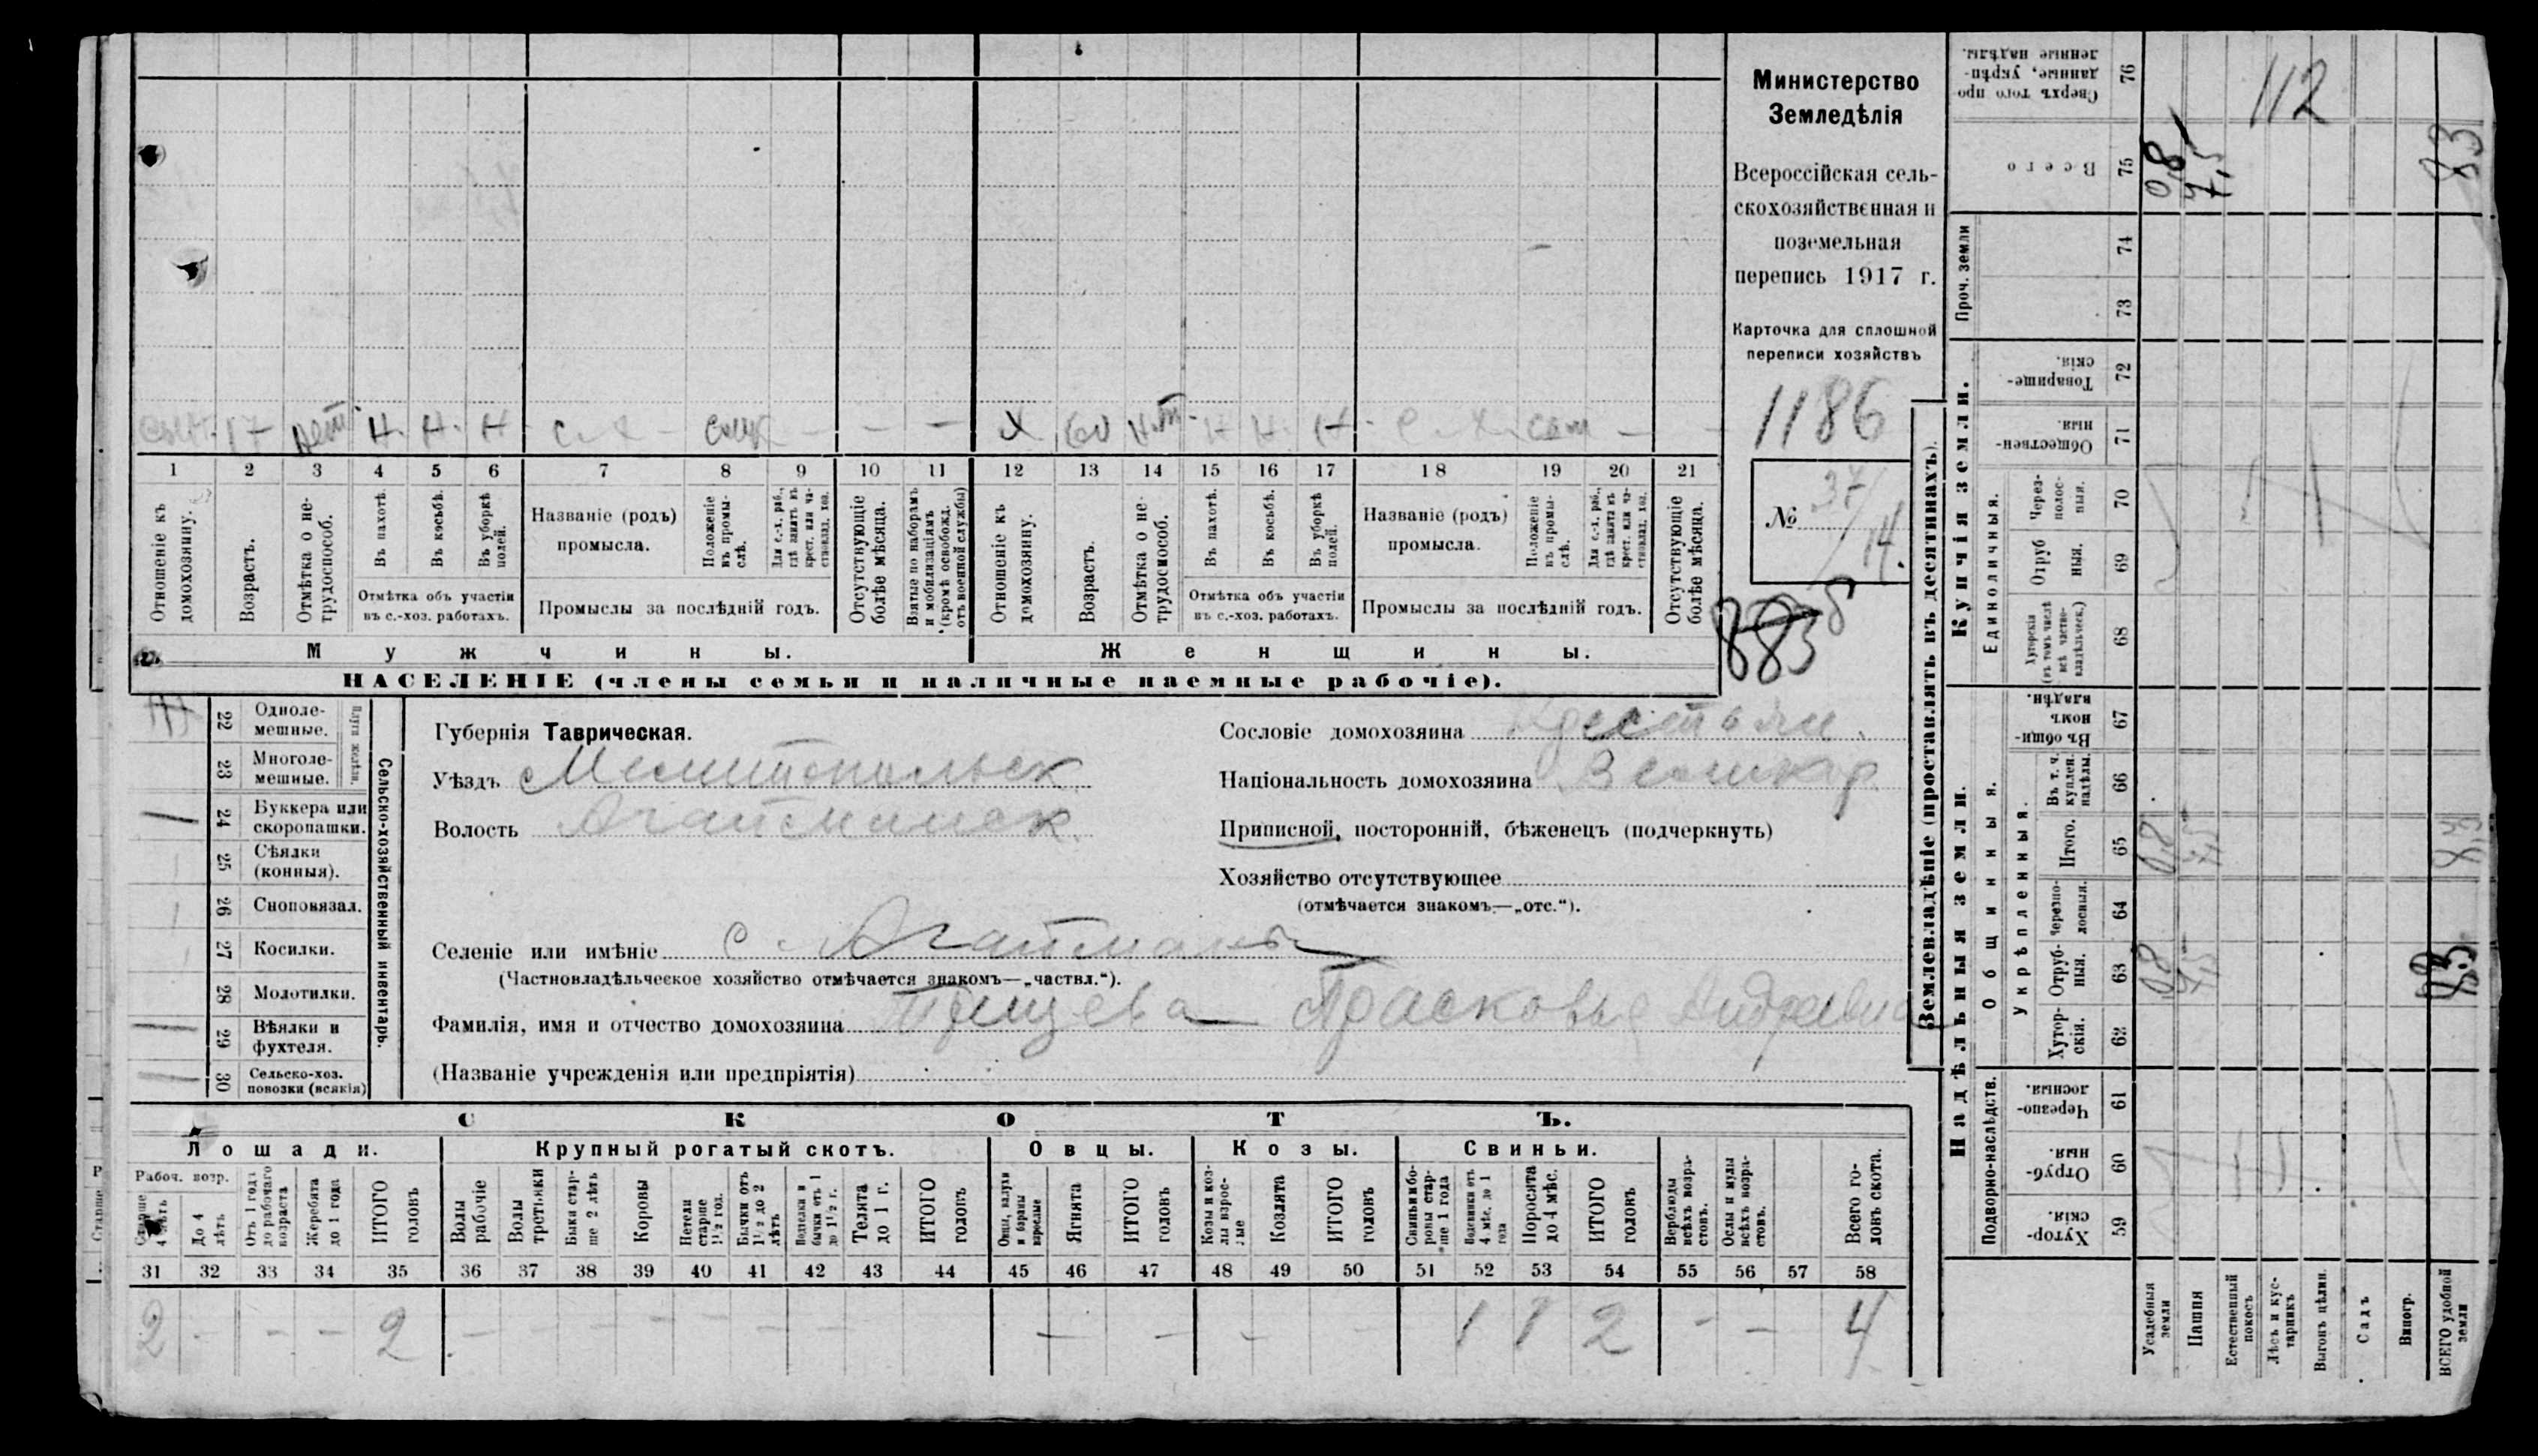 Министерство
Земледѣлія
Всероссійская сель-
скохозяйственная и
поземельная
перепись 1917 г.
Карточка для сплошной
переписи хозяйствъ
1186
№ 37/14.
883
сын. 17 Н. Н. Н с.-х Х 60 Н. Н. Н с.-х. сам
1 2 3 4 5 6 7 8 9 10 11 12 13 14 15 16 17 18 19 20 21
Отношеніе къ домохозяину.
Возрастъ.
Отмѣтка о не-трудоспособ.
Въ пахотѣ.
Въ косьбѣ.
Въ уборкѣ полей.
Отмѣтка объ участіи
въ с.-хоз. работахъ.
Названіе (родъ)
промысла.
Положеніе въ промы-слѣ.
Для с.-х. раб., гдѣ занятъ въ крест. или ча-стновлад. хоз.
Промыслы за послѣдній годъ.
Отсутствующіе болѣе мѣсяца.
Взятые по наборамъ и мобилизаціямъ (кромѣ освобожд. отъ военной службы)
Отношеніе къ домохозяину.
Возрастъ.
Отмѣтка о не-трудоспособ.
Въ пахотѣ.
Въ косьбѣ.
Въ уборкѣ полей.
Отмѣтка объ участіи
въ с.-хоз. работахъ.
Названіе (родъ)
промысла.
Положеніе въ промы-слѣ.
Для с.-х. раб., гдѣ занята въ крест. или ча-стновлад. хоз.
Промыслы за послѣдній годъ.
Отсутствующіе болѣе мѣсяца.
Мужчины.
Женщины.
НАСЕЛЕНІЕ (члены семьи и наличные наемные рабочіе).
22 Одноле-мешные.
23 Многоле-мешные.
24 Буккера или скоропашки.
25 Сѣялки (конныя).
26 Сноповязал.
27 Косилки.
28 Молотилки.
29 Вѣялки и фухтеля.
30 Сельско-хоз. повозки (всякія)
Сельско-хозяйственный инвентарь.
Губернія Таврическая.
Уѣздъ Мелитопольск
Волость Агайманск
Селеніе или имѣніе с Агайманы
(Частновладѣльческое хозяйство отмѣчается знакомъ—„частвл.“).
Фамилія, имя и отчество домохозяина Прасковья Андреевна
(Названіе учрежденія или предпріятія)
Сословіе домохозяина крестьян.
Національность домохозяина Великор
Приписной, посторонній, бѣженецъ (подчеркнуть)
Хозяйство отсутствующее
(отмѣчается знакомъ—„отс.“).
СКОТЪ.
Лошади. Крупный рогатый скотъ. Овцы. Козы. Свиньи.
Рабоч. возр.
Старше 4 лѣтъ
До 4 лѣтъ
Отъ 1 года до рабочаго возраста
Жеребята до 1 года
ИТОГО головъ
Волы рабочіе
Волы третьяки
Быки стар-ше 2 лѣтъ
Коровы
Нетели старше 1½ год.
Бычки отъ 1½ до 2 лѣтъ
Телята до 1 г.
ИТОГО головъ
Овцы, валухи и бараны взрослые
Ягнята
ИТОГО головъ
Козы и коз-лы взрос-лые
Козлята
ИТОГО головъ
Свиньи и бо-ровы стар-ше 1 года
Подсвинки отъ 4 мѣс. до 1 года
Поросята до 4 мѣс.
ИТОГО головъ
Верблюды всѣхъ возра-стовъ.
Ослы и мулы всѣхъ возра-стовъ.
Всего го-ловъ скота.
31 32 33 34 35 36 37 38 39 40 41 42 43 44 45 46 47 48 49 50 51 52 53 54 55 56 57 58
2 – – – 2 – – – – – – – – – – – 1 1 2 – – 4
Землевладѣніе (проставлять въ десятинахъ).
Купчія земли.
Надѣльныя земли.
Проч. земли
Единоличныя.
Общинныя.
Укрѣпленныя.
Подворно-наслѣдств.
76 Сверхъ того про данные, укрѣп-ленные надѣлы. 112
75 Всего 0,8 7,5 8,3
74
73
72 Товарище-скія.
71 Обществен-ныя.
70 Через-полос-ныя.
69 Отруб ныя.
68 Хуторскія (въ томъ числѣ всѣ частно-владѣльческ.)
67 Въ общи-номъ владѣн.
66 Въ т. ч. куплен. надѣлы.
65 Итого. 0,8 7,5 8,3
64 Черезпо-лосныя.
63 Отруб-ныя. 0,8 7,5 8.3
62 Хутор-скія.
61 Черезпо-лосныя.
60 Отруб-ныя.
59 Хутор-скія.
Усадебныя земли
Пашня
Естественный покосъ
Лѣсъ и кус-тарникъ
Выгонъ цѣлин.
Садъ
Виногр.
ВСЕГО удобной земли